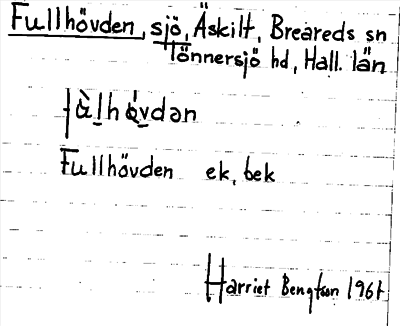 Fullhövden, sjö, Äskilt, Breareds sn
Tönnersjö hd, Hall. län
Fullhövden ek, bek
Harriet Bengtson 1961